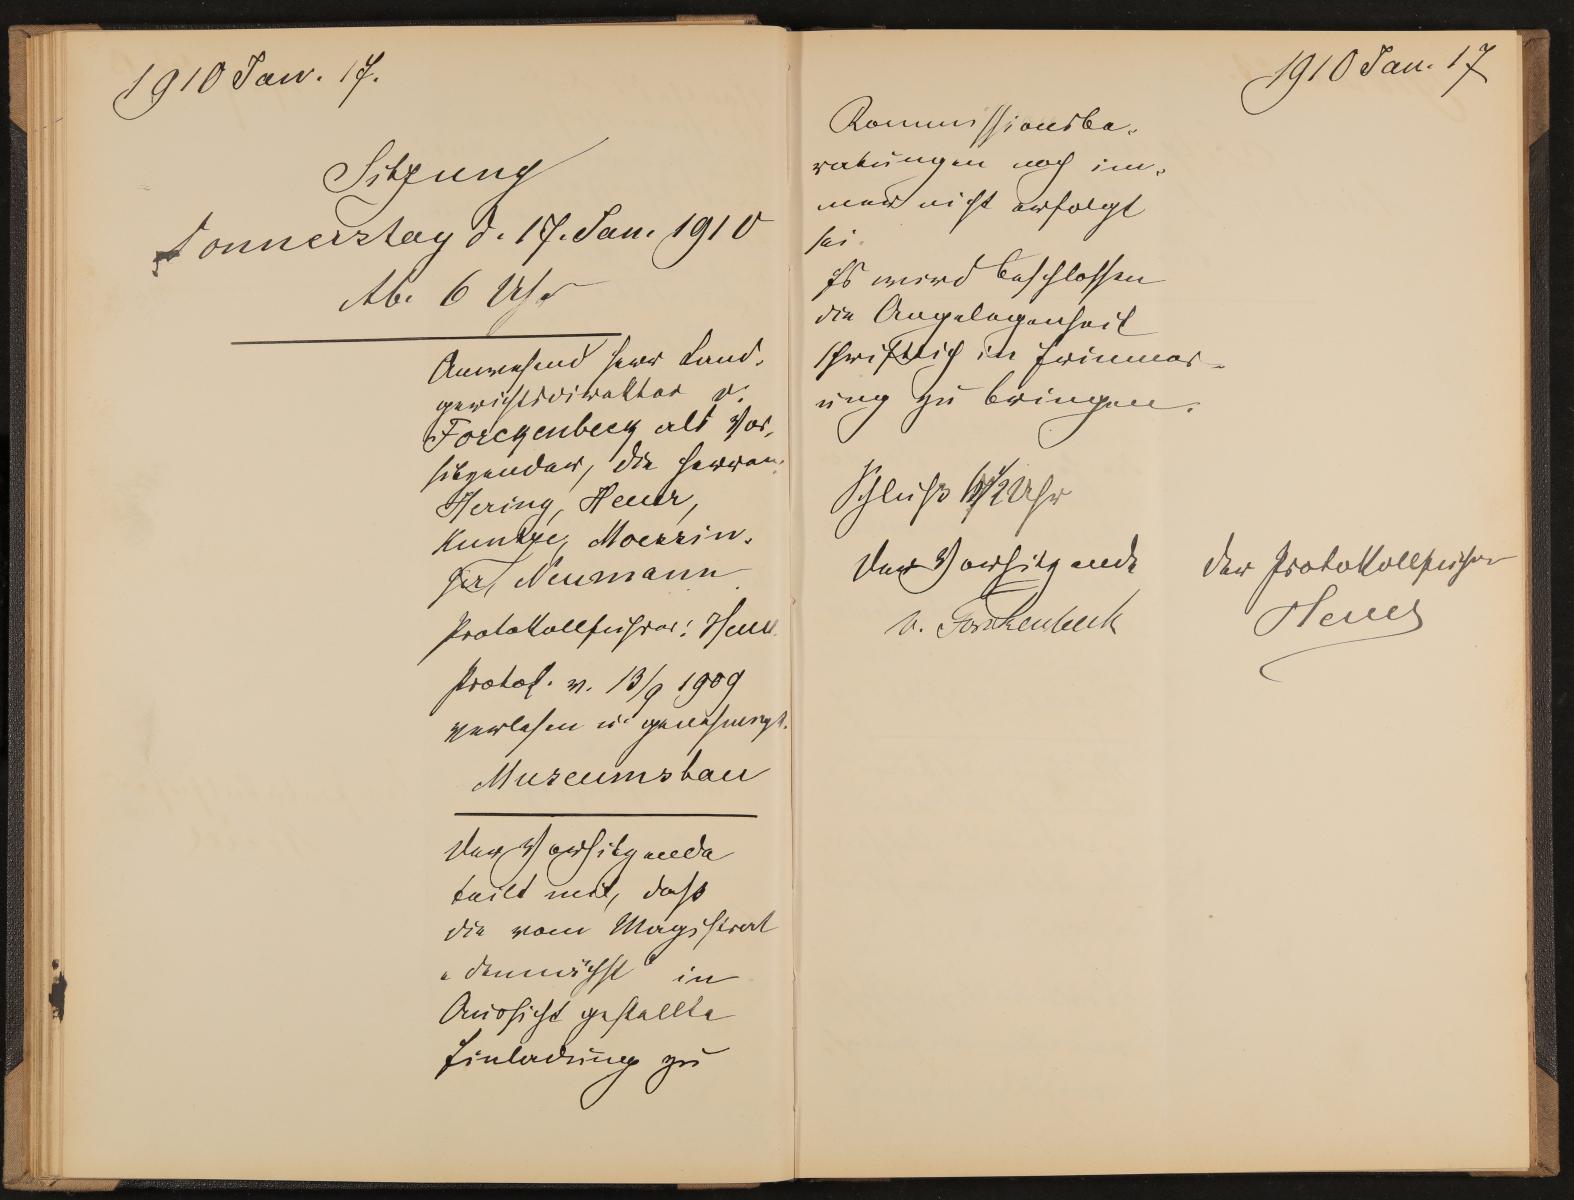 1910 Jan. 17.
Sitzung
Donnerstag d. 17. Jan. 1910
Ab. 6 Uhr
Anwesend Herr Land-
gerichtsdirektor v.
Forckenbeck als Vor-
sitzender, die Herren
Hering, Heuer,
Kuntze, Moessin-
ger, Neumann
Protokollführer: Heuer
Protok. v. 13/9 1909
verlesen u. genehmigt.
Museumsbau
Der Vorsitzende
teilt mit, daß
die vom Magistrat
„demnächst“ in
Aussicht gestellte
Einladung zu
1910 Jan. 17
Kommissionsbe-
ratungen noch im-
mer nicht erfolgt
sei.
Es wird beschlossen
die Angelegenheit
schriftlich in Erinner-
ung zu bringen.
Schluß 1/2 Uhr
Der Vorsitzende
v. Forckenbeck
Der Protokollführer
Heuer